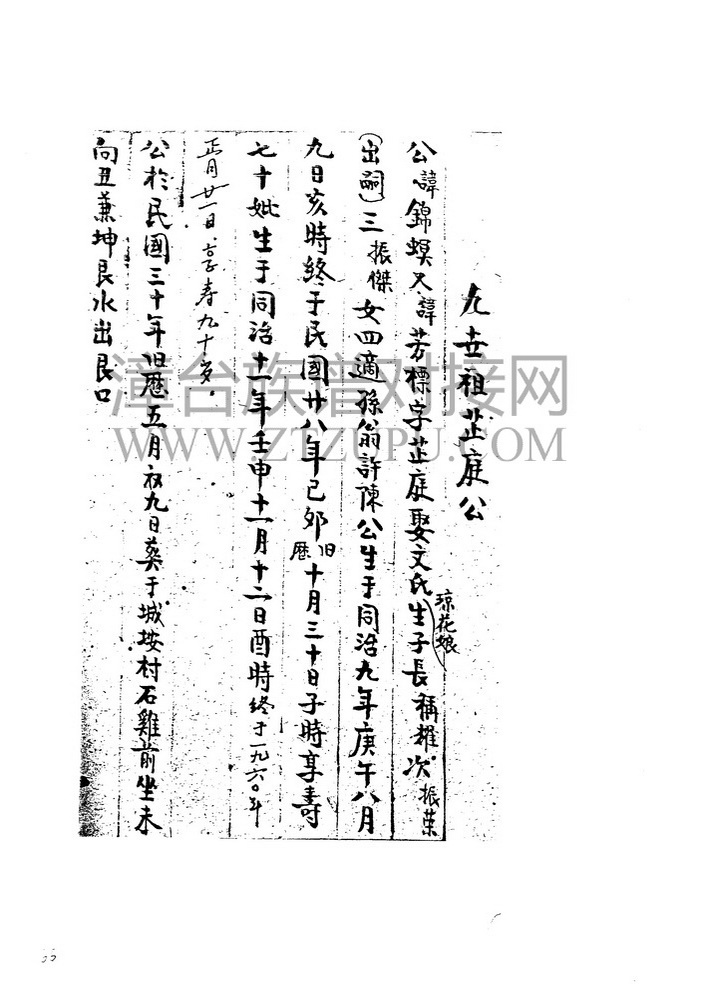 九世祖芷庭公
公諱錦螟又諱芳標字芷庭娶文氏琼花娘生子長稱耀次振荣
(出嗣)三振傑女四適孫翁許陳公生于同治九年庚午八月
九日亥時終于民國廿八年己卯旧歷十月三十日子時享壽
七十妣生于同治十一年壬申十一月十二日酉時终于一九六〇年
正月廿一日.享寿九十岁.
公於民國三十年旧歷五月初九日葵于城垵村石雞前坐未
向丑兼坤艮水出艮口
漳台族谱对接网
WWW.ZTZUPU.COM